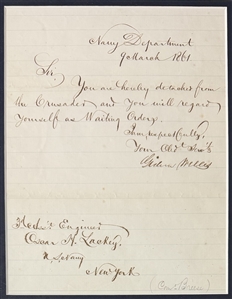 Navy Department
9 March 1861.
Sir,
You are hereby detached from
the Crusader and you will regard
yourself as Waiting Orders.
I am respectfully,
Your Obdt Servt
Gideon Welles
Engineer
Oscar H. Lackey,
New York